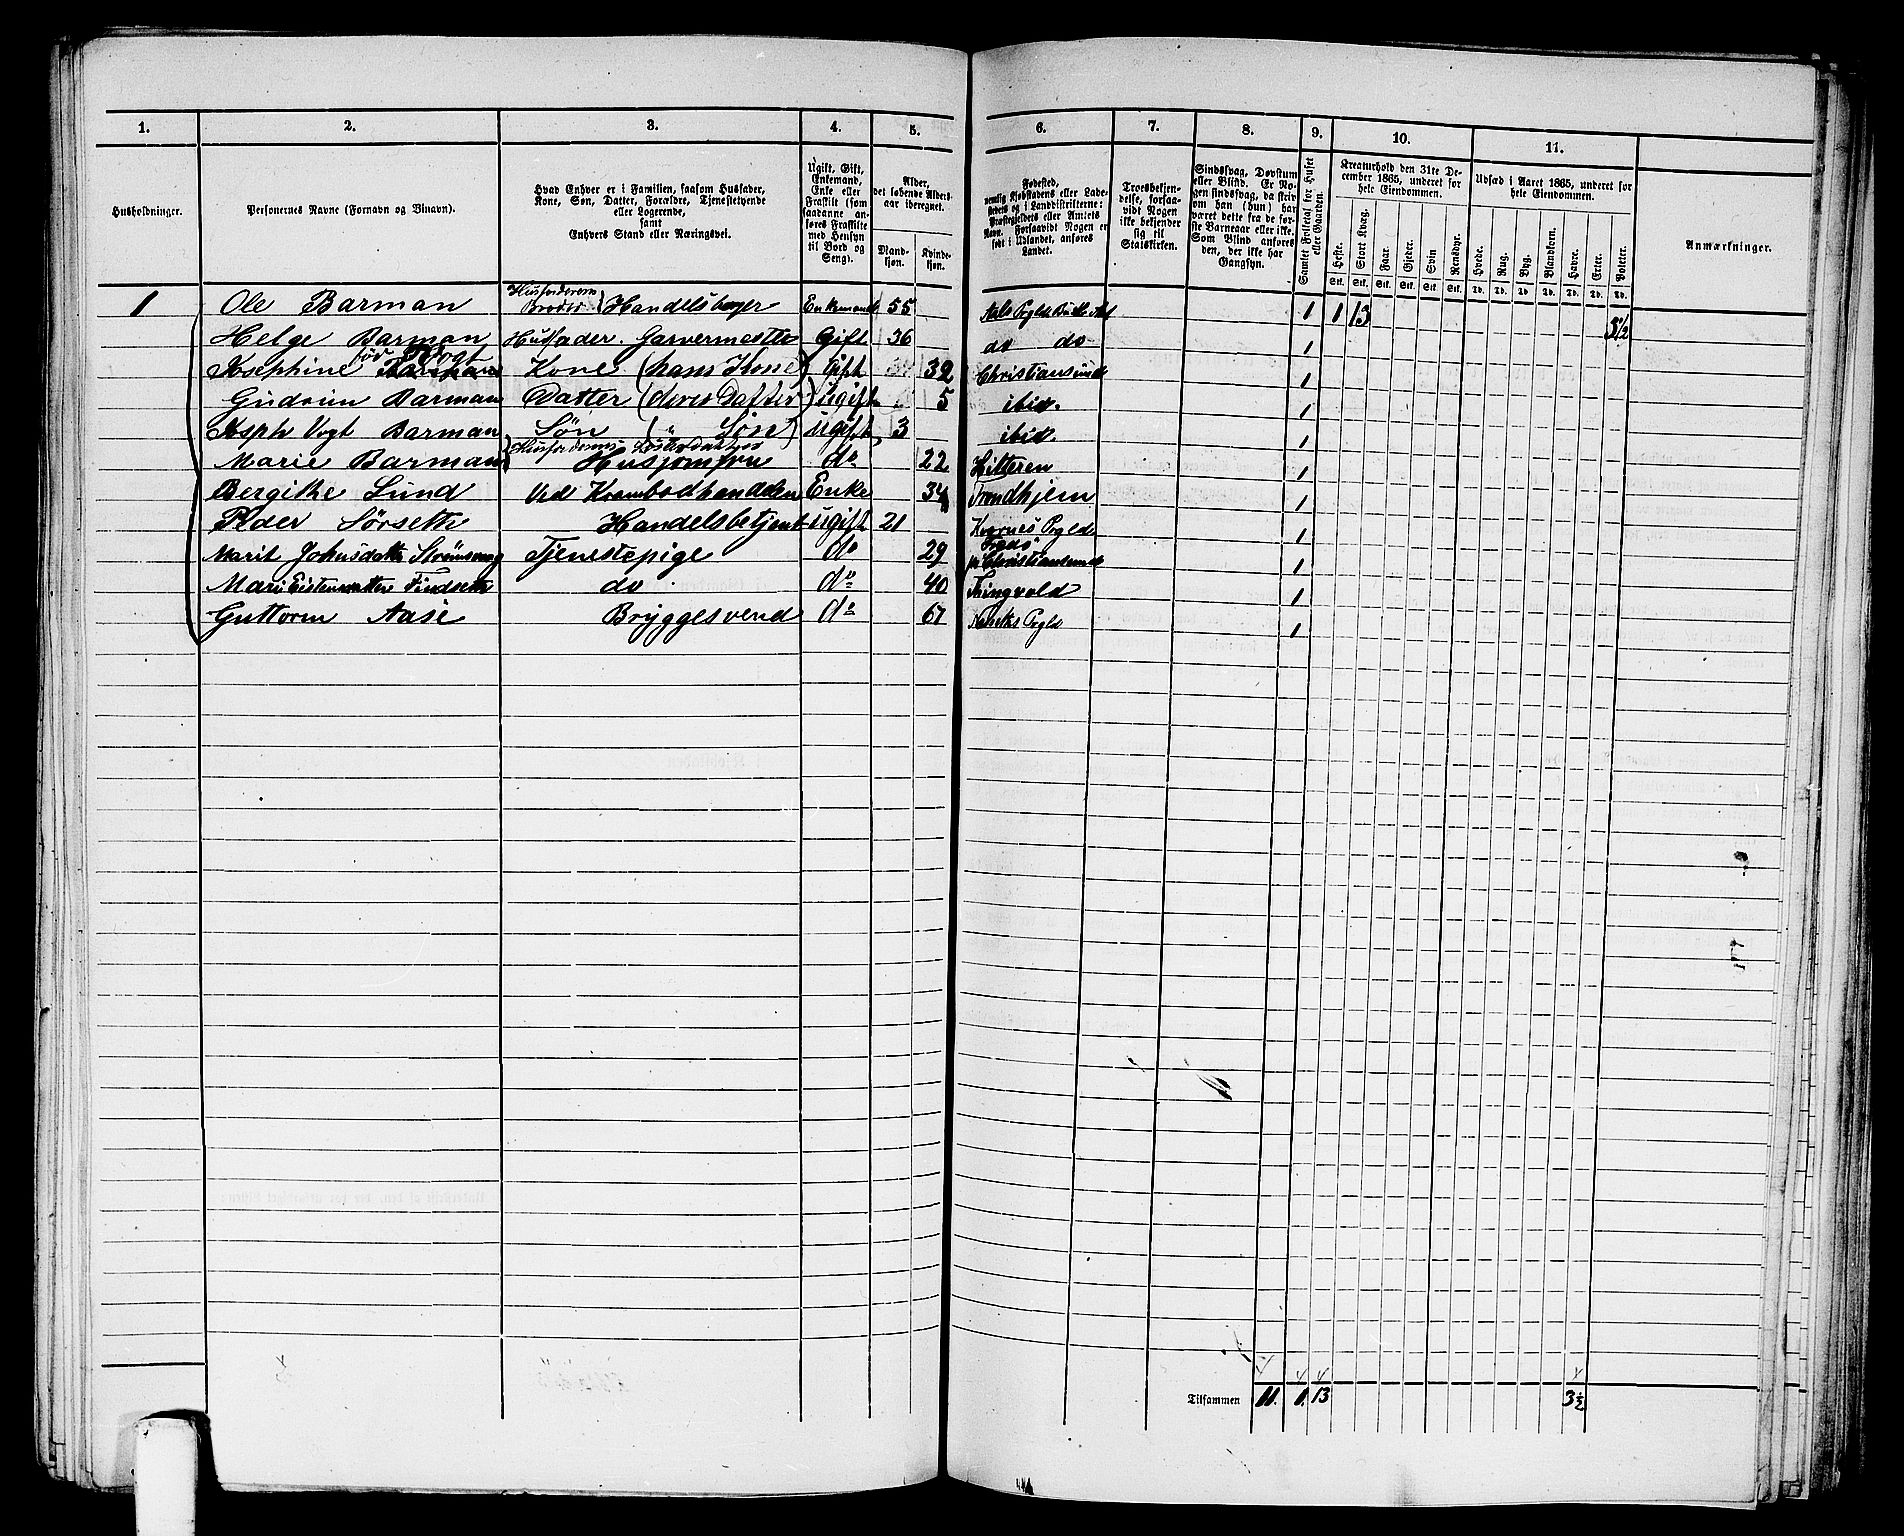 1. 2. 3. 4. 5. 6. 7. 8. 9. 10. 11.
Husholdninger.
Personernes Navne (Fornavn og Tilnavn).
Hvad Enhver er i Familien, saasom Husfader,
Kone, Søn, Datter, Forældre, Tjenestetyende
eller Logerende,
samt
Enhvers Stand eller Næringsvei.
Ugift, Gift,
Enkemand,
Enke eller
Fraskilt (som
saadanne an-
føres Fraskilte
med Hensyn
til Bord og
Seng).
Alder,
det løbende Alders-
aar iberegnet.
Mand-
kjøn.
Kvinde-
kjøn.
Fødested,
nemlig Kjøbstadens eller Lade-
stedets og i Landdistrikterne:
Præstegjeldets eller Amtets
Navn. Forsaavidt Nogen er
født i Udlandet, anføres
Landet.
Troesbekjen-
delse, forsaa-
vidt Nogen
ikke bekjender
sig til
Statskirken.
Sindssvag, Døvstum
eller Blind. Er No-
gen sindssvag, da skriv
om han (hun) har
været dette fra de før-
ste Barneaar eller ikke.
Som Blind anføres
den, der ikke har
Gangsyn.
Samlet Folketal for Huset
eller Gaarden.
Kreaturhold den 31te De-
cember 1865, underet for
hele Eiendommen.
Heste. Stort Kvæg. Faar. Gjeder. Svin Rensdyr.
Stk. Stk. Stk. Stk. Stk. Stk.
Udsæd i Aaret 1865, underet for
hele Eiendommen.
Hvede. Rug. Byg. Blandkorn. Havre. Erter. Poteter.
Td. Td. Td. Td. Td. Td. Td.
Anmærkninger.
1 Ole Barman Husfaderens Broder Handelsborger Enkemand 55 1 1 13 3½
Helge Barman Husfader. Garvermester Gift 36 do do 1
Josephine Barman fød Vogt Kone (hans Kone) Gift 32 Christiansund 1
Gudrun Barman Datter (deres Datter) ugift 5 ibid. 1
Joseph Vogt Barman Søn ( " Søn) ugift 3 ibid. 1
Marie Barman Husfaderens Søsterdatter Husjomfru do 22 Hitteren 1
Bergithe Lund Ved Krambodhandelen Enke 34 Trondhjem 1
Peder Sørseth Handelsbetjent ugift 21 Kvernes Pgld 1
Marit Johnsdatter Tjenestepige do 29 Christiansund 1
Mari do do 40 Thingvold 1
Guttorm Aase Bryggesvend do 67 Pgld 1
Tilsammen 11. 1. 13 3½